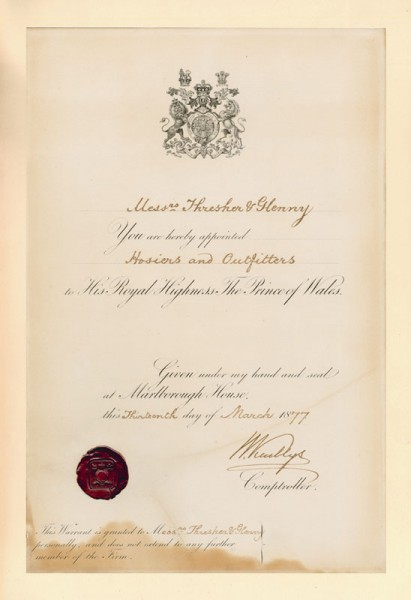 Messrs Thresher & Glenny
You are hereby appointed
Hosiers and Outfitters
to His Royal Highness The Prince of Wales.
Given under my hand and seal
at Marlborough House,
this Thirteenth day of March 1877
Comptroller.
This Warrant is granted to Messrs Thresher & Glenny
personally, and does not extend to any further
member of the Firm.